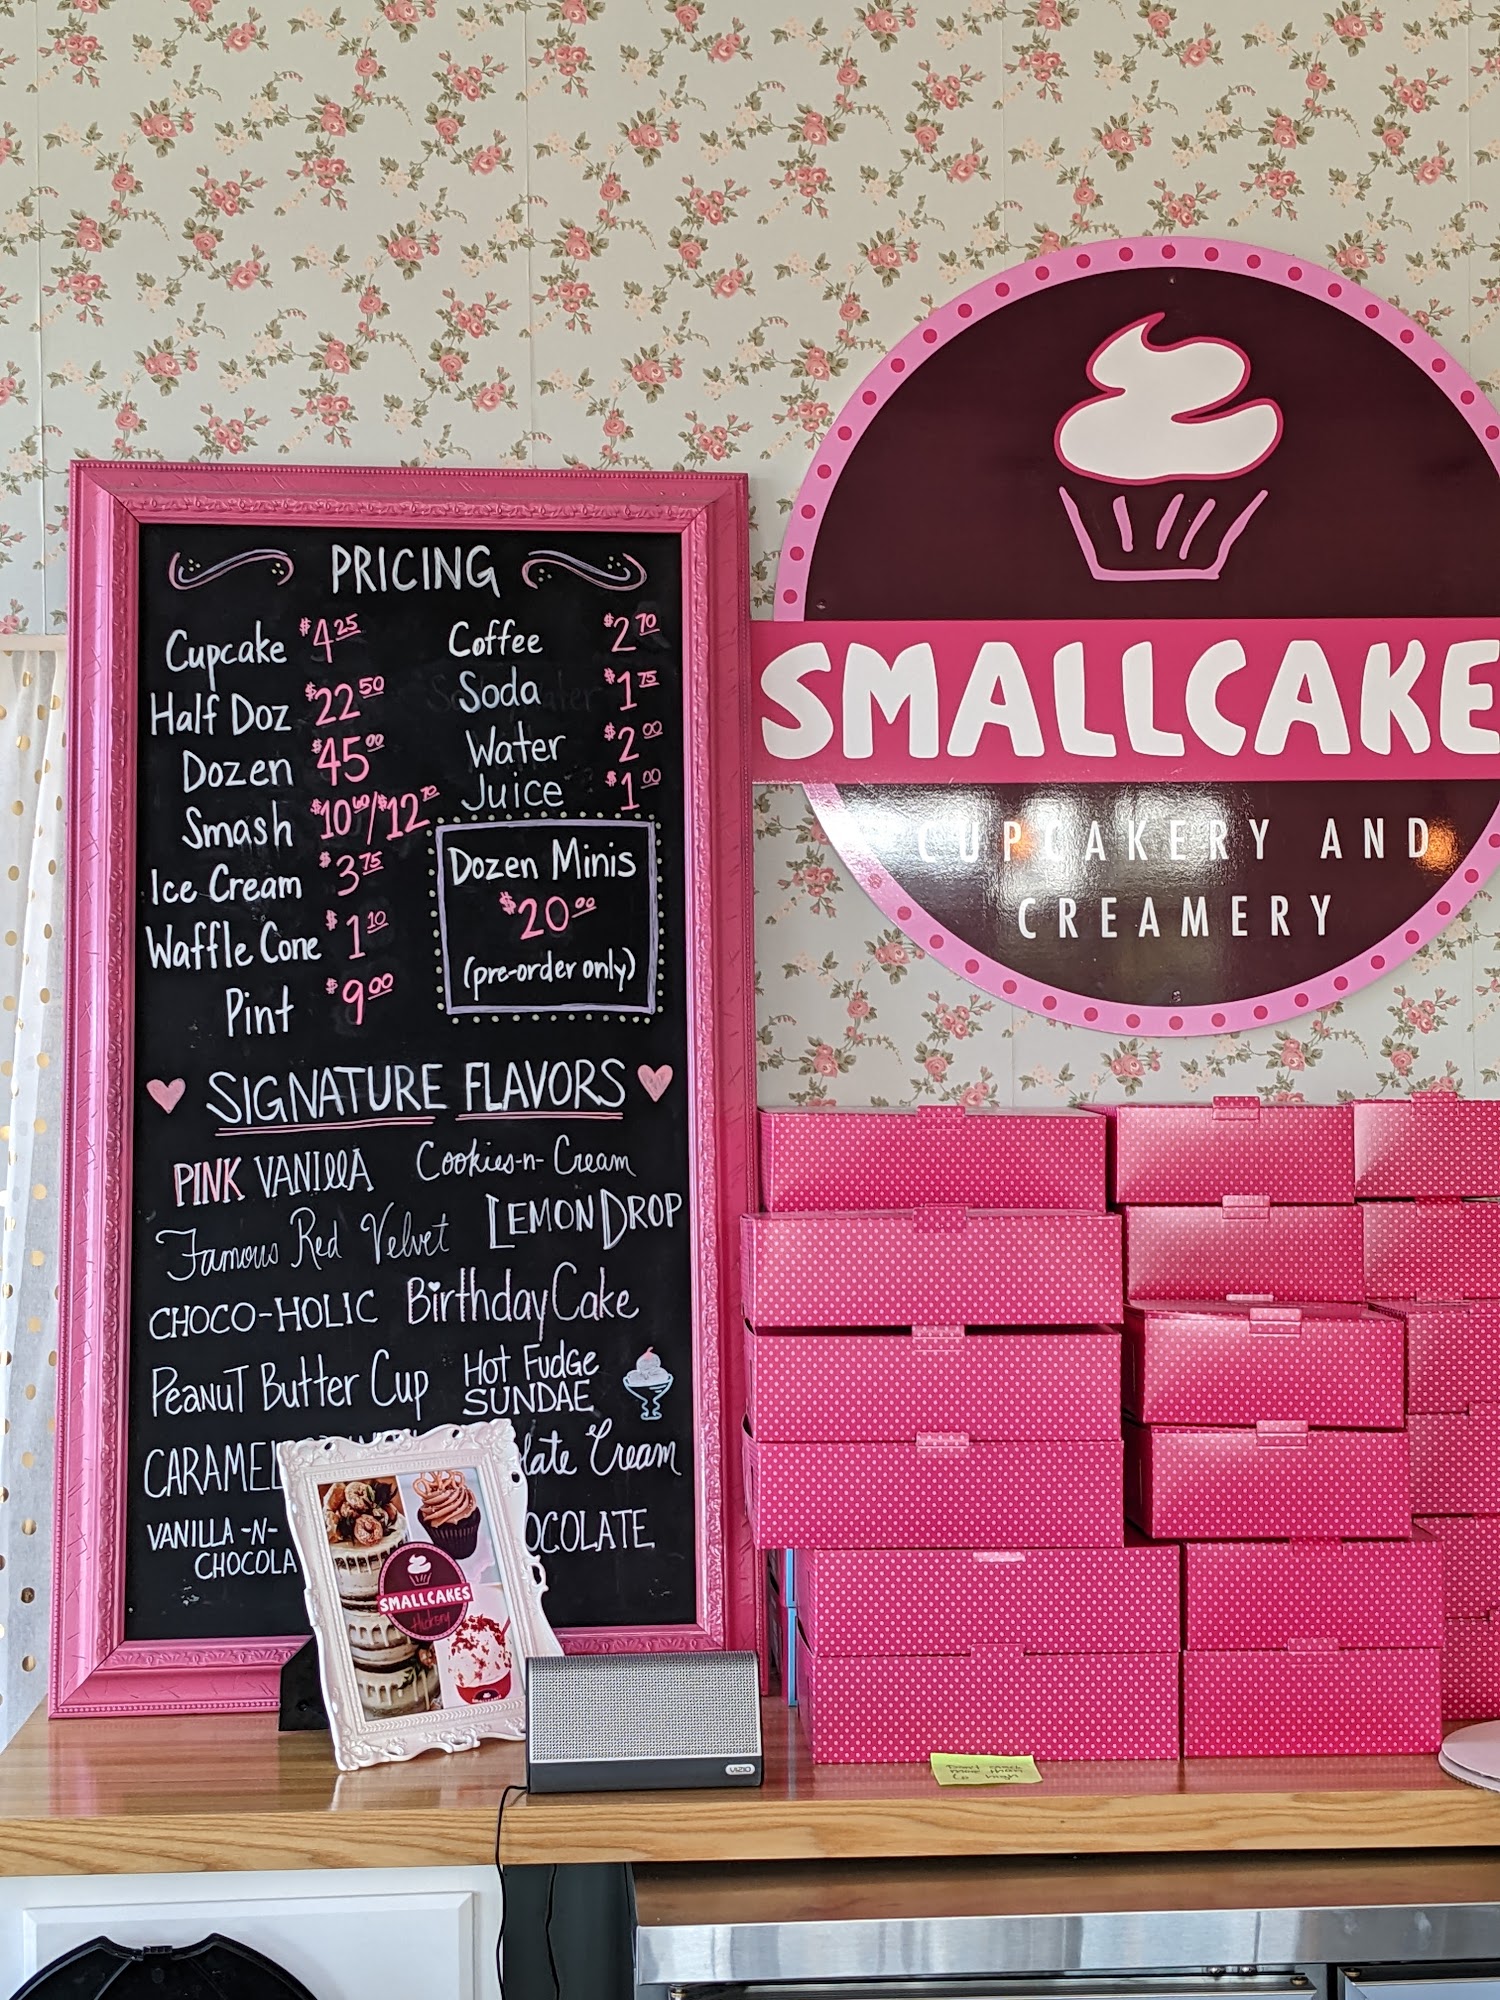 PRICING
Cupcake $4.25
Half Doz $22.50
Dozen $45.00
Smash $10.60/$12.70
Ice Cream $3.75
Waffle Cone $1.10
Pint $9.00
Coffee $2.70
Soda $1.75
Water $2.00
Juice $1.00
Dozen Minis
$20.00
(pre-order only)
SIGNATURE FLAVORS
PINK VANILLA Cookies-n-Cream
Famous Red Velvet LEMON DROP
CHOCO-HOLIC Birthday Cake
Peanut Butter Cup HOT FUDGE
SUNDAE
CARAMEL
late Cream
VANILLA-N-
CHOCOLA
OCOLATE
SMALLCAKES
Hickory
VIZIO
SMALLCAKE
CUPCAKERY AND
CREAMERY